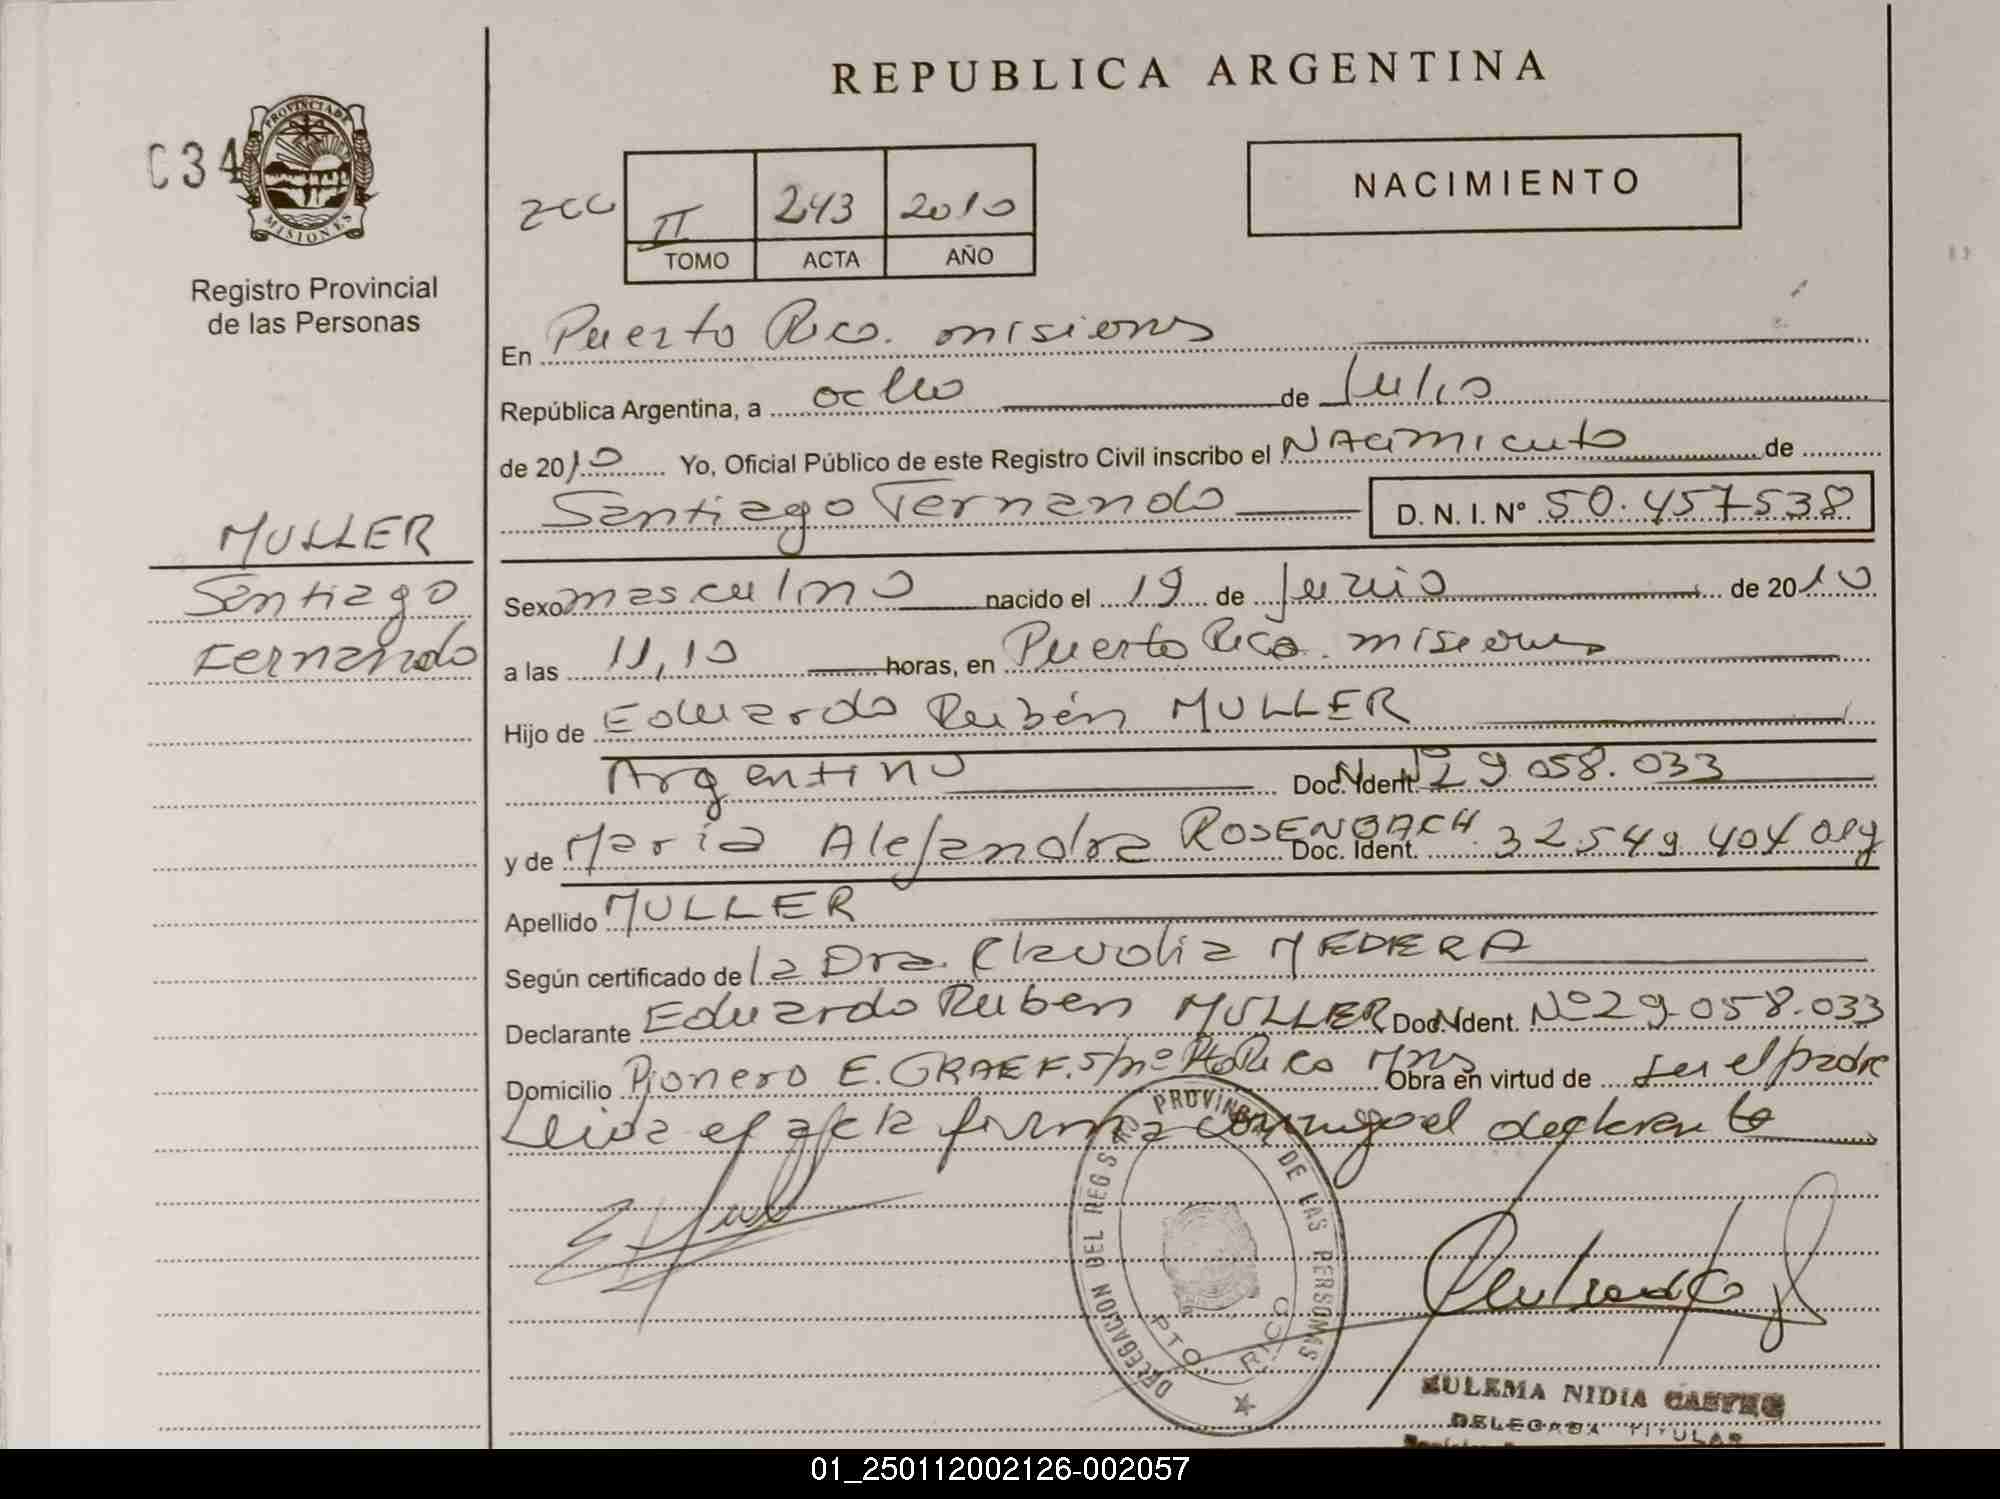 REPUBLICA ARGENTINA
C34
PROVINCIA DE
MISIONES
Registro Provincial
de las Personas
II 243 2010
TOMO ACTA AÑO
NACIMIENTO
En Puerto Rico. misiones
República Argentina, a ocho de Julio
de 2010 Yo, Oficial Público de este Registro Civil inscribo el NAcimiento de
Santiago Fernando D. N. I. Nº 50.457538
MULLER
Santiago
Fernando
Sexo masculino nacido el 19 de junio de 2010
a las 11,10 horas, en Puerto Rico. misiones
Hijo de Eduardo Rubén MULLER
Argentino Doc. Ident. Nº 29.058.033
y de María Alejandra ROSENBACH Doc. Ident. 32.549.404 arg
Apellido MULLER
Según certificado de la Dra. Claudia MEDERA
Declarante Eduardo Ruben MULLER Doc. Ident. Nº 29.058.033
Domicilio Pionero E. GRAEF. s/nº Pto Rico Mns Obra en virtud de ser el padre
Leida el acta firma conmigo el declarante
DELEGACION DEL REG PROVINCIAL DE LAS PERSONAS
PTO. RICO
ZULEMA NIDIA
DELEGADA TITULAR
01_250112002126-002057